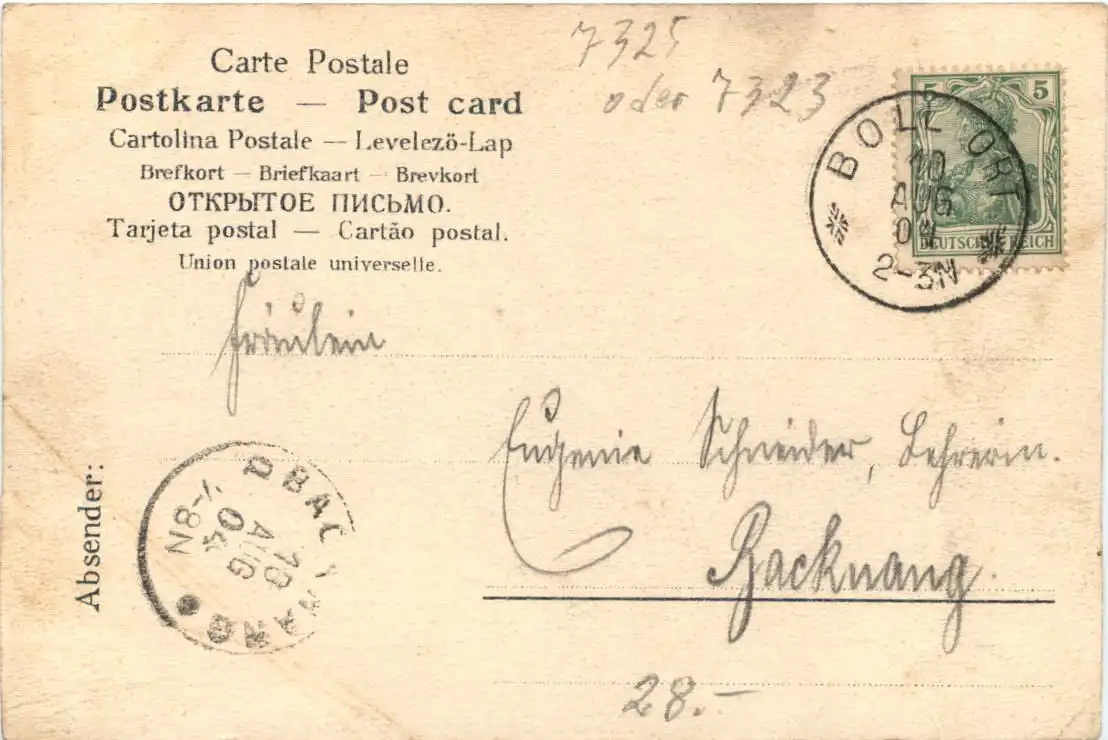 Carte Postale
Postkarte — Post card
Cartolina Postale — Levelezö-Lap
Brefkort — Briefkaart — Brevkort
ОТКРЫТОЕ ПИСЬМО.
Tarjeta postal — Cartão postal.
Union postale universelle.
7325
oder 7323
5 5
DEUTSCHES REICH
BOLL ORT
10
AUG
04
2-3N
Fräulein
Eugenie Schneider, Lehrerin.
Backnang.
Absender:
BACKNANG
10
AUG
04
7-8N
28.-